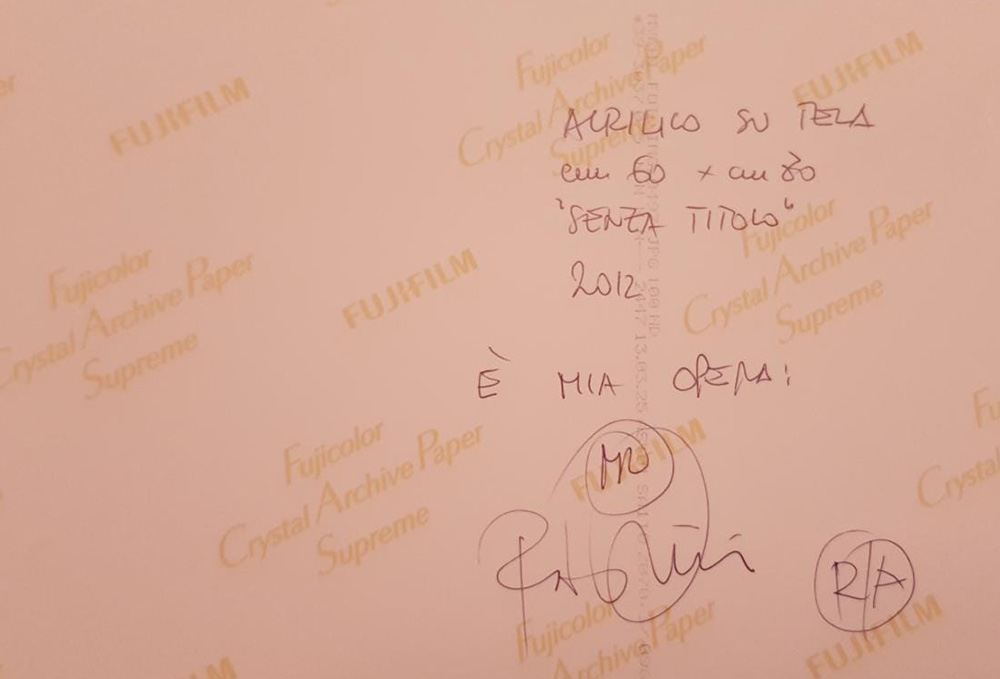 ACRILICO SU TELA
cm 60 x cm 80
"SENZA TITOLO"
2012
È MIA OPERA:
MR
R/A
FUJIFILM
Fujicolor
Crystal Archive Paper
Supreme
FUJIFILM
Fujicolor
Crystal Archive Paper
Supreme
FUJIFILM
Fujicolor
Crystal Archive Paper
Supreme
Fujicolor
Crystal Archive Paper
Supreme
FUJIFILM
Fujicolor
Archive Paper
FUJIFILM